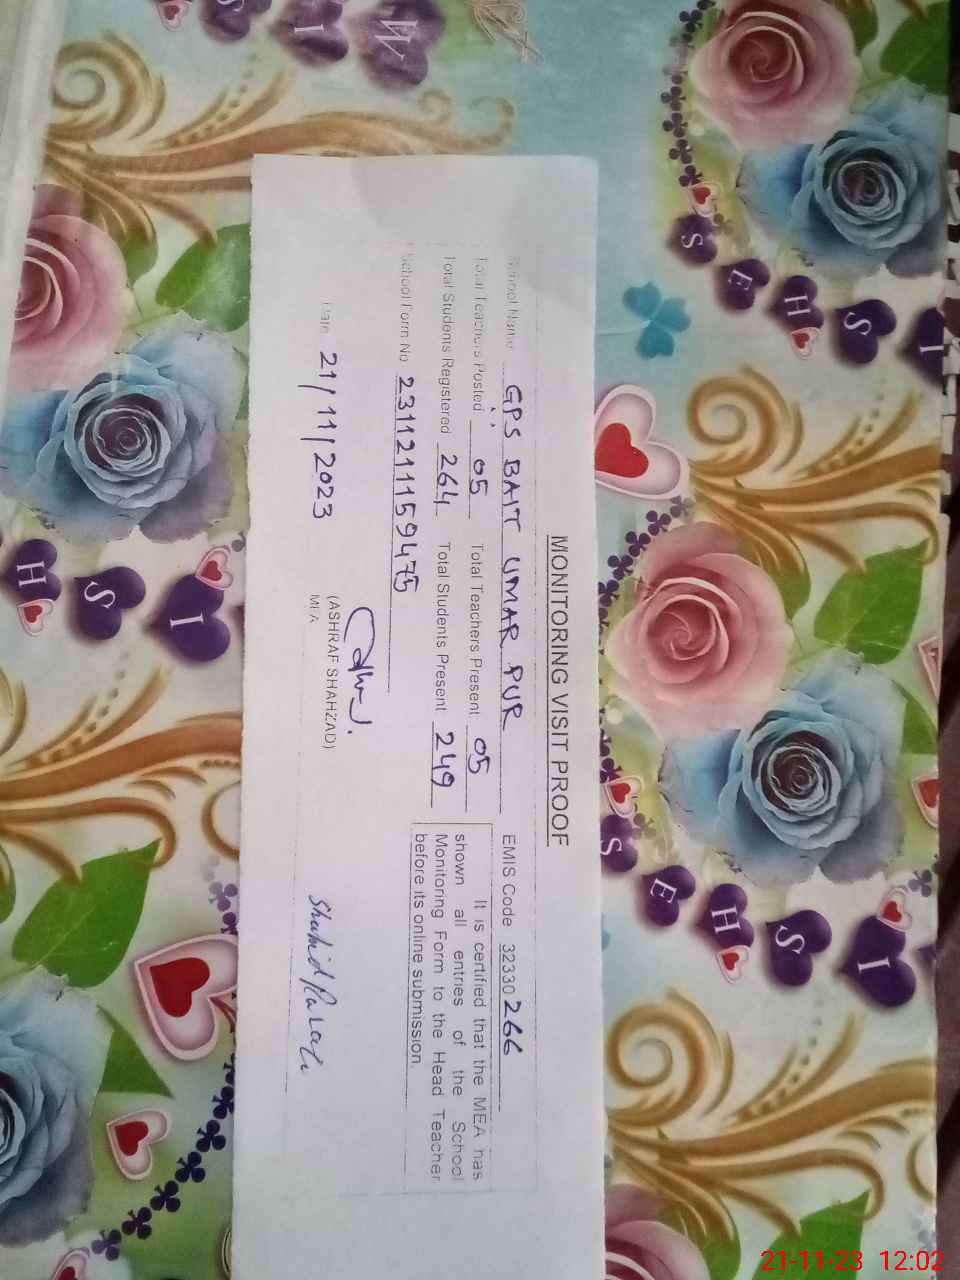 MONITORING VISIT PROOF
School Name GPS BAIT UMAR PUR EMIS Code 32330266
Total Teachers Posted 05 Total Teachers Present 05
Total Students Registered 264 Total Students Present 249
School Form No 2311211159475
It is certified that the MEA has
shown all entries of the School
Monitoring Form to the Head Teacher
before its online submission.
Date 21/11/2023
(ASHRAF SHAHZAD)
MEA
Shahid
SEHSI
SEHSI
HSI
21-11-23 12:02